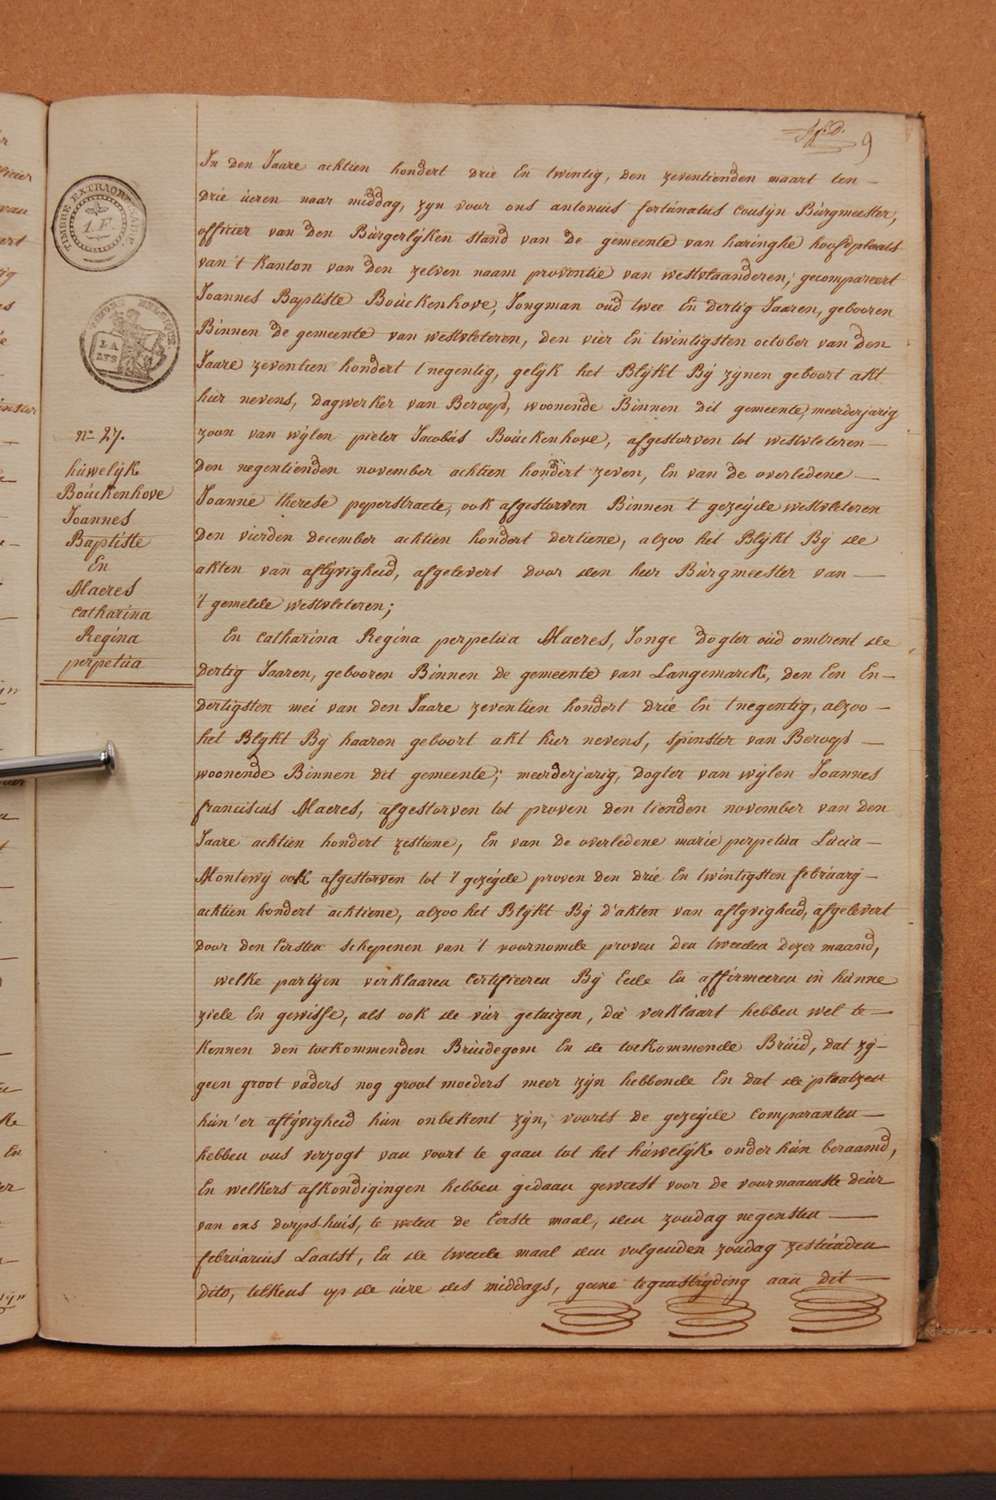 9
TIMBRE EXTRAORD
1.F.
LA
n.º 27.
húwelijk
Boúckenhove
Joannes
Baptiste
En
Maeres
catharina
Regina
perpetúa
In den Jaare achtien hondert drie En twintig, den zeventienden maart ten –
drie úeren naar middag, zyn voor ons antonuis fortúnatus Cousyn Búrgmeester,
officier van den Búrgerlijken stand van de gemeente van haringhe hoofdplaats
van 't Kanton van den zelven naam proventie van westvlaanderen; gecompareert
Joannes Baptiste Boúckenhove, Jongman oúd twee En dertig Jaaren, gebooren
Binnen de gemeente van westvleteren, den vier En twintigsten october van den
Jaare zeventien hondert tnegentig, gelyk het Blykt By zynen geboort akt
hier nevens, dagwerker van Beroep, woonende Binnen dit gemeente, meerderjarig
zoon van wylen pieter Jacobús Boúckenhove, afgestorven tot westvleteren –
den negentienden november achtien hondert zeven, En van de overledene –
Joanne therese peperstraete, ook afgestorven Binnen 't gezeyde westvleteren
den vierden december achtien hondert dertiene, alzoo het Blykt By de
akten van aflyvigheid, afgelevert door den heer Búrgmeester van –
't gemelde westvleteren;
En Catharina Regina perpetúa Maeres, Jonge dogter oúd omtrent de
dertig Jaaren, gebooren Binnen de gemeente van Langemarck, den Een En –
dertigsten mei van den Jaare zeventien hondert drie En tnegentig, alzoo –
het Blykt By haaren geboort akt hier nevens, spinster van Beroep –
woonende Binnen dit gemeente; meerderjarig, dogter van wylen Joannes
franciscus Maeres, afgestorven tot proven den tienden november van den
Jaare achtien hondert zestiene, En van de overledene marie perpetúa Lúcia –
Montewy ook afgestorven tot 't gezeyde proven den drie En twintigsten febrúarij –
achtien hondert achtiene, alzoo het Blykt By d'akten van aflyvigheid, afgelevert
door den Eersten schepenen van 't voornomde proven den tweeden dezer maand,
welke partyen verklaaren Certifieeren By Eede En affirmeeren in húnne
ziele En gewisse, als ook de vier getuigen, die verklaart hebben wel te –
kennen den toekommenden Brúidegom En de toekommende Brúid, dat zy –
geen groot vaders nog groot moeders meer zyn hebbende En dat de plaatzen
hún'er aflyvigheid hún onbekent zyn, voorts de gezeyde Comparanten –
hebben ons verzogt van voort te gaan tot het húwelyk onder hún beraamd,
En welkers afkondigingen hebben gedaan geweest voor de voornaamste deúr
van ons dorps-húis, te weten de Eerste maal, den zondag negensten –
februarius Laatst, En de tweede maal den volgenden zondag zestienden
dito, telkens op de úere des middags, geene tegenstryding aan dit –